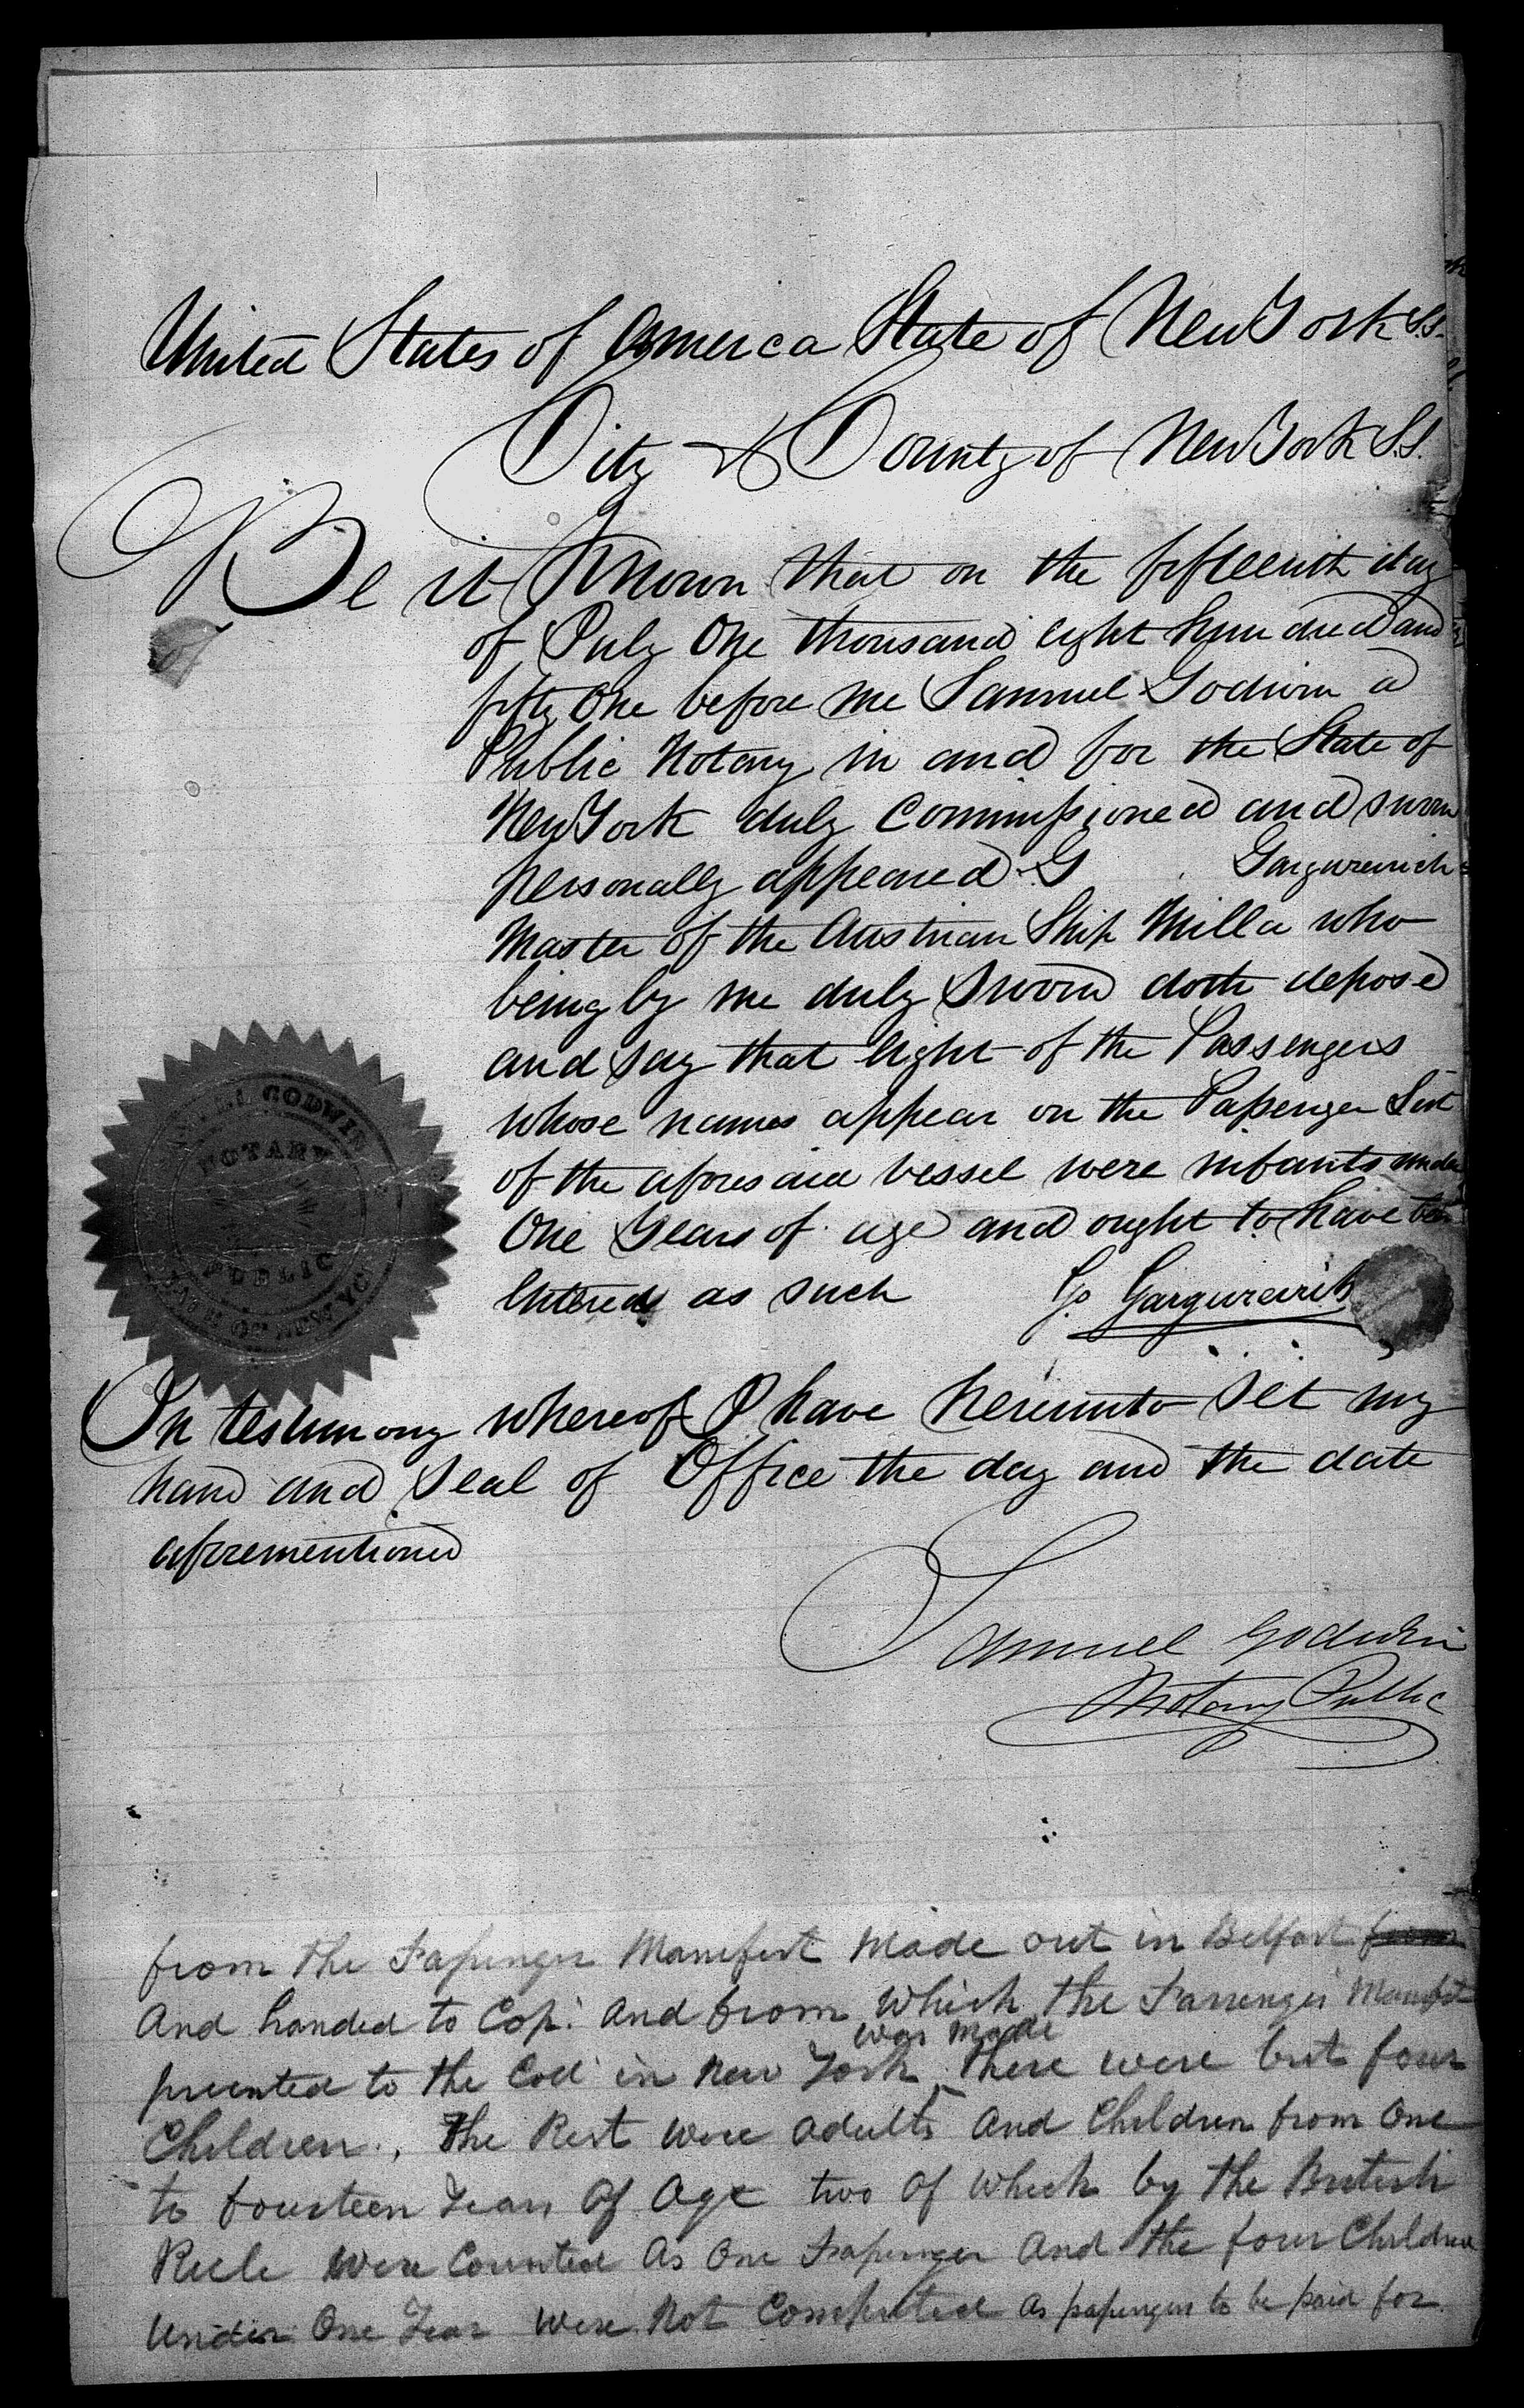 United States of America State of New York S.S.
City & County of New York S.S.
Be it Known that on the fifteenth day
of July One thousand eight hundred and
fifty One before me Samuel Godwin a
Public Notary in and for the State of
New York duly Commissioned and sworn
personally appeared G
Master of the Austrian Ship Milla who
being by me duly Sworn doth depose
and say that eight of the Passengers
whose names appear on the Passenger List
of the aforesaid vessel were infants under
One Years of age and ought to have been
Entered as such G. Gargurevich
In testimony whereof I have hereunto set my
hand and Seal of Office the day and the date
aforementioned
Samuel Godwin
Notary Public
GODWIN
NOTARY
PUBLIC
STATE OF NEW YO
from the Passenger Manifest Made out in Belfast from
And handed to Cap. And from which the Passenger Manifest
was made
presented to the Col in New York There were but four
Children. The Rest were adults And Children from One
to fourteen Years Of Age two Of Which by the British
Rule Were Counted As One Passenger And the four Children
Under One Year Were Not Computed As passengers to be paid for